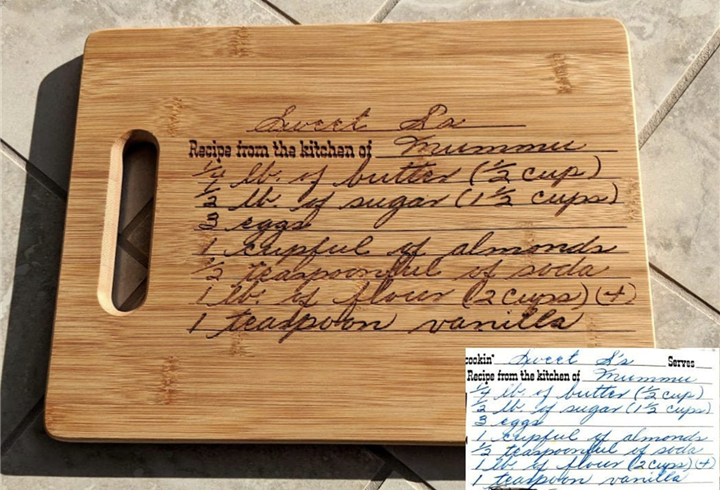 Sweet S's
Recipe from the kitchen of Mummu
1/4 lb. of butter (1/2 cup)
1/2 lb. of sugar (1 1/2 cups)
3 eggs
1 cupful of almonds
1/2 teaspoonful of soda
1 lb. of flour (2 cups) (+)
1 teaspoon vanilla
cookin' Sweet S's Serves
Recipe from the kitchen of Mummu
1/4 lb. of butter (1/2 cup)
1/2 lb. of sugar (1 1/2 cups)
3 eggs
1 cupful of almonds
1/2 teaspoonful of soda
1 lb of flour (2 cups) (+)
1 teaspoon vanilla